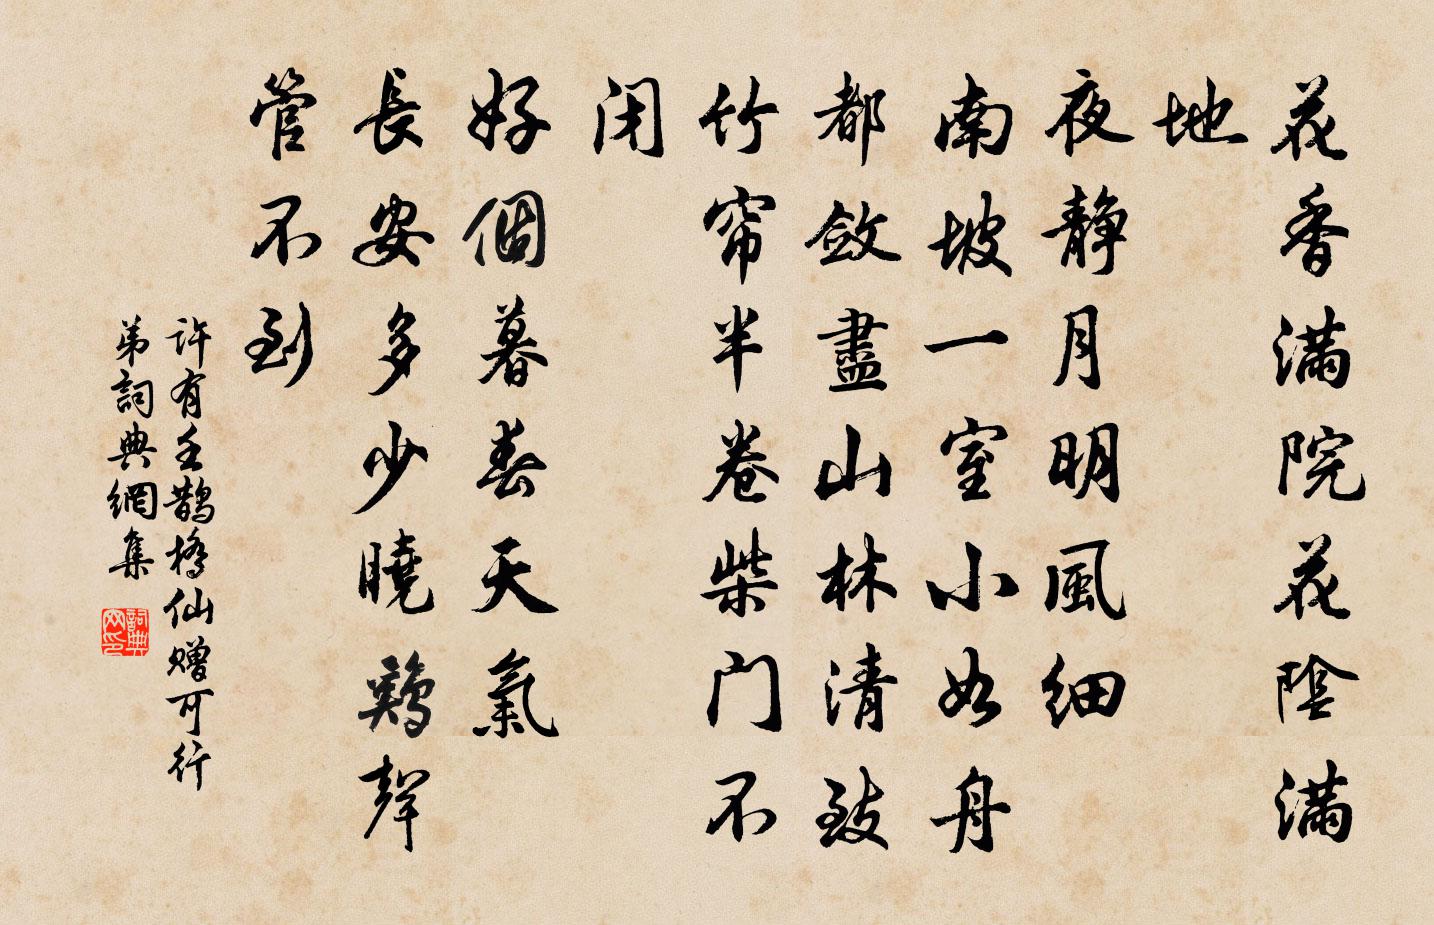 花香滿院花陰滿
地
夜静月明風細
南坡一室小如舟
都斂盡山林清致
竹帘半卷柴门不
闭
好個暮春天氣
長安多少曉鷄聲
管不到
许有壬鵲橋仙赠可行
弟詞典網集
詞典
网印